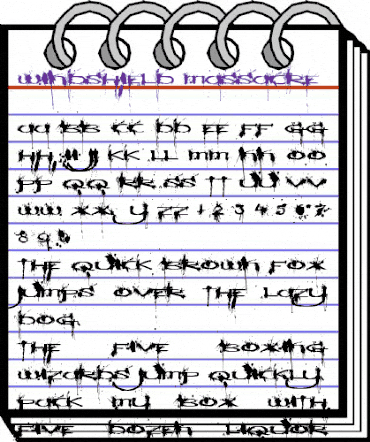 Windshield Massacre
Aa Bb Cc Dd Ee Ff Gg
Hh Ii Jj Kk Ll Mm Nn Oo
Pp Qq Rr Ss Tt Uu Vv
Ww Xx Yy Zz 1 2 3 4 5 6 7
8 9 0
The quick brown fox
jumps over the lazy
dog.
The five boxing
wizards jump quickly.
Pack my box with
five dozen liquor